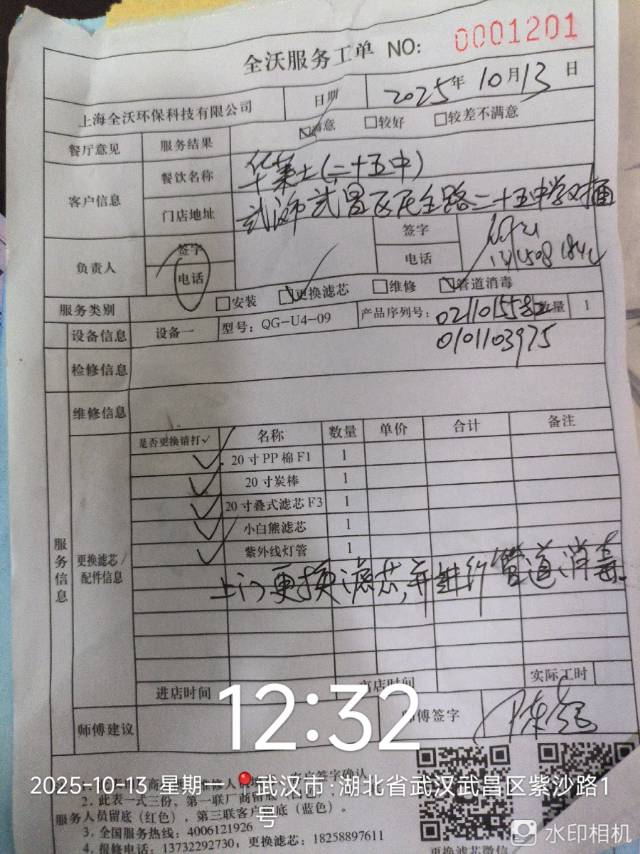 全沃服务工单 NO: 0001201
上海全沃环保科技有限公司 日期 2025年10月13日
餐厅意见 服务结果 ☑满意 □较好 □较差不满意
客户信息 餐饮名称 华莱士(二十五中)
门店地址 武汉市武昌区民主路二十五中学对面
负责人 签字 签字
电话 电话
服务类别 □安装 ☑更换滤芯 □维修 ☑管道消毒
设备信息 设备一 型号: QG-U4-09 产品序列号: 数量 1
0101103975
检修信息
维修信息
服务信息
更换滤芯/配件信息
是否更换请打√ 名称 数量 单价 合计 备注
√ 20寸PP棉F1 1
√ 20寸炭棒 1
√ 20寸叠式滤芯F3 1
√ 小白熊滤芯 1
√ 紫外线灯管 1
上门更换滤芯,并进行管道消毒
进店时间 离店时间 实际工时
12:32
师傅建议 师傅签字
2025-10-13 星期一 武汉市·湖北省武汉武昌区紫沙路1号
2. 此表一式三份,第一联厂商留底
服务人员留底(红色),第三联客户留底(蓝色)。
3. 全国服务热线: 4006121926
4. 报修电话: 13732292730; 更换滤芯: 18258897611
更换滤芯
水印相机